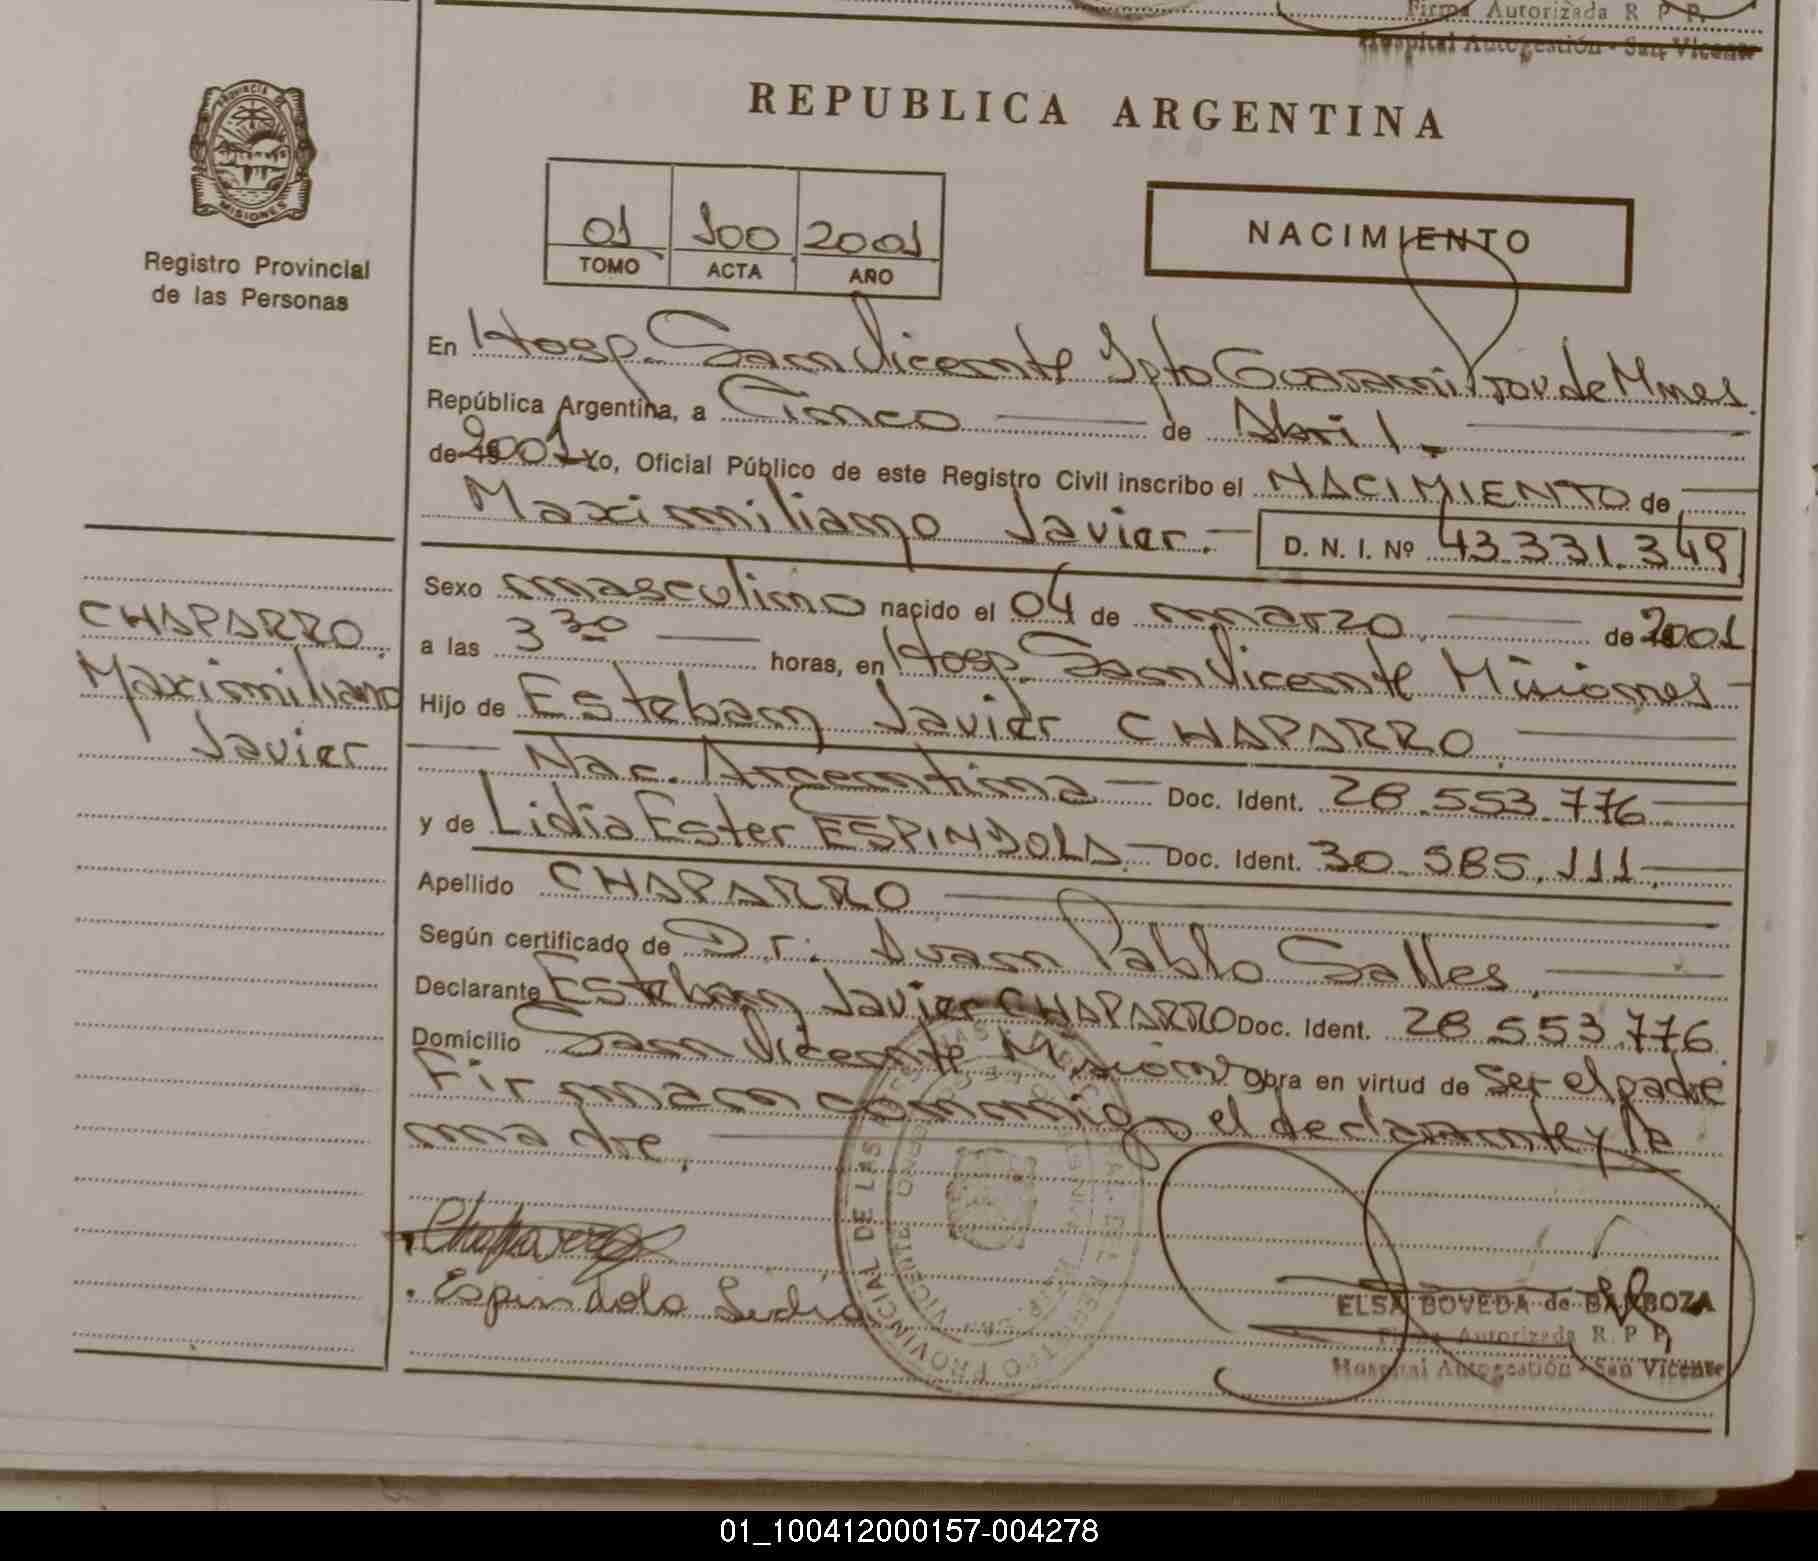 Firma Autorizada R. P. P.
Hospital Autogestión - San Vicente
REPUBLICA ARGENTINA
PROVINCIA DE
MISIONES
Registro Provincial
de las Personas
01 100 2001
TOMO ACTA AÑO
NACIMIENTO
En Hosp. San Vicente Dpto Guarani Prov de Mnes
República Argentina, a Cinco de Abril.-
de 2001 Yo, Oficial Público de este Registro Civil inscribo el NACIMIENTO de
Maximiliano Javier.- D. N. I. Nº 43.331.349
Sexo masculino nacido el 04 de marzo de 2001
a las 3 30 horas, en Hosp. San Vicente Misiones-
Hijo de Esteban Javier CHAPARRO
Nac. Argentina- Doc. Ident. 28.553.776-
y de Lidia Ester ESPINDOLA- Doc. Ident. 30.585.111.-
Apellido CHAPARRO
Según certificado de Dr. Juan Pablo Salles.
Declarante Esteban Javier CHAPARRO Doc. Ident. 28.553.776
Domicilio San Vicente Misiones Obra en virtud de ser el padre
Firman conmigo el declarante y la
madre.
CHAPARRO
Maximiliano
Javier
Chaparro
Espindola Lidia
ELSA BOVEDA de BARBOZA
Firma Autorizada R. P. P.
Hospital Autogestión - San Vicente
01_100412000157-004278